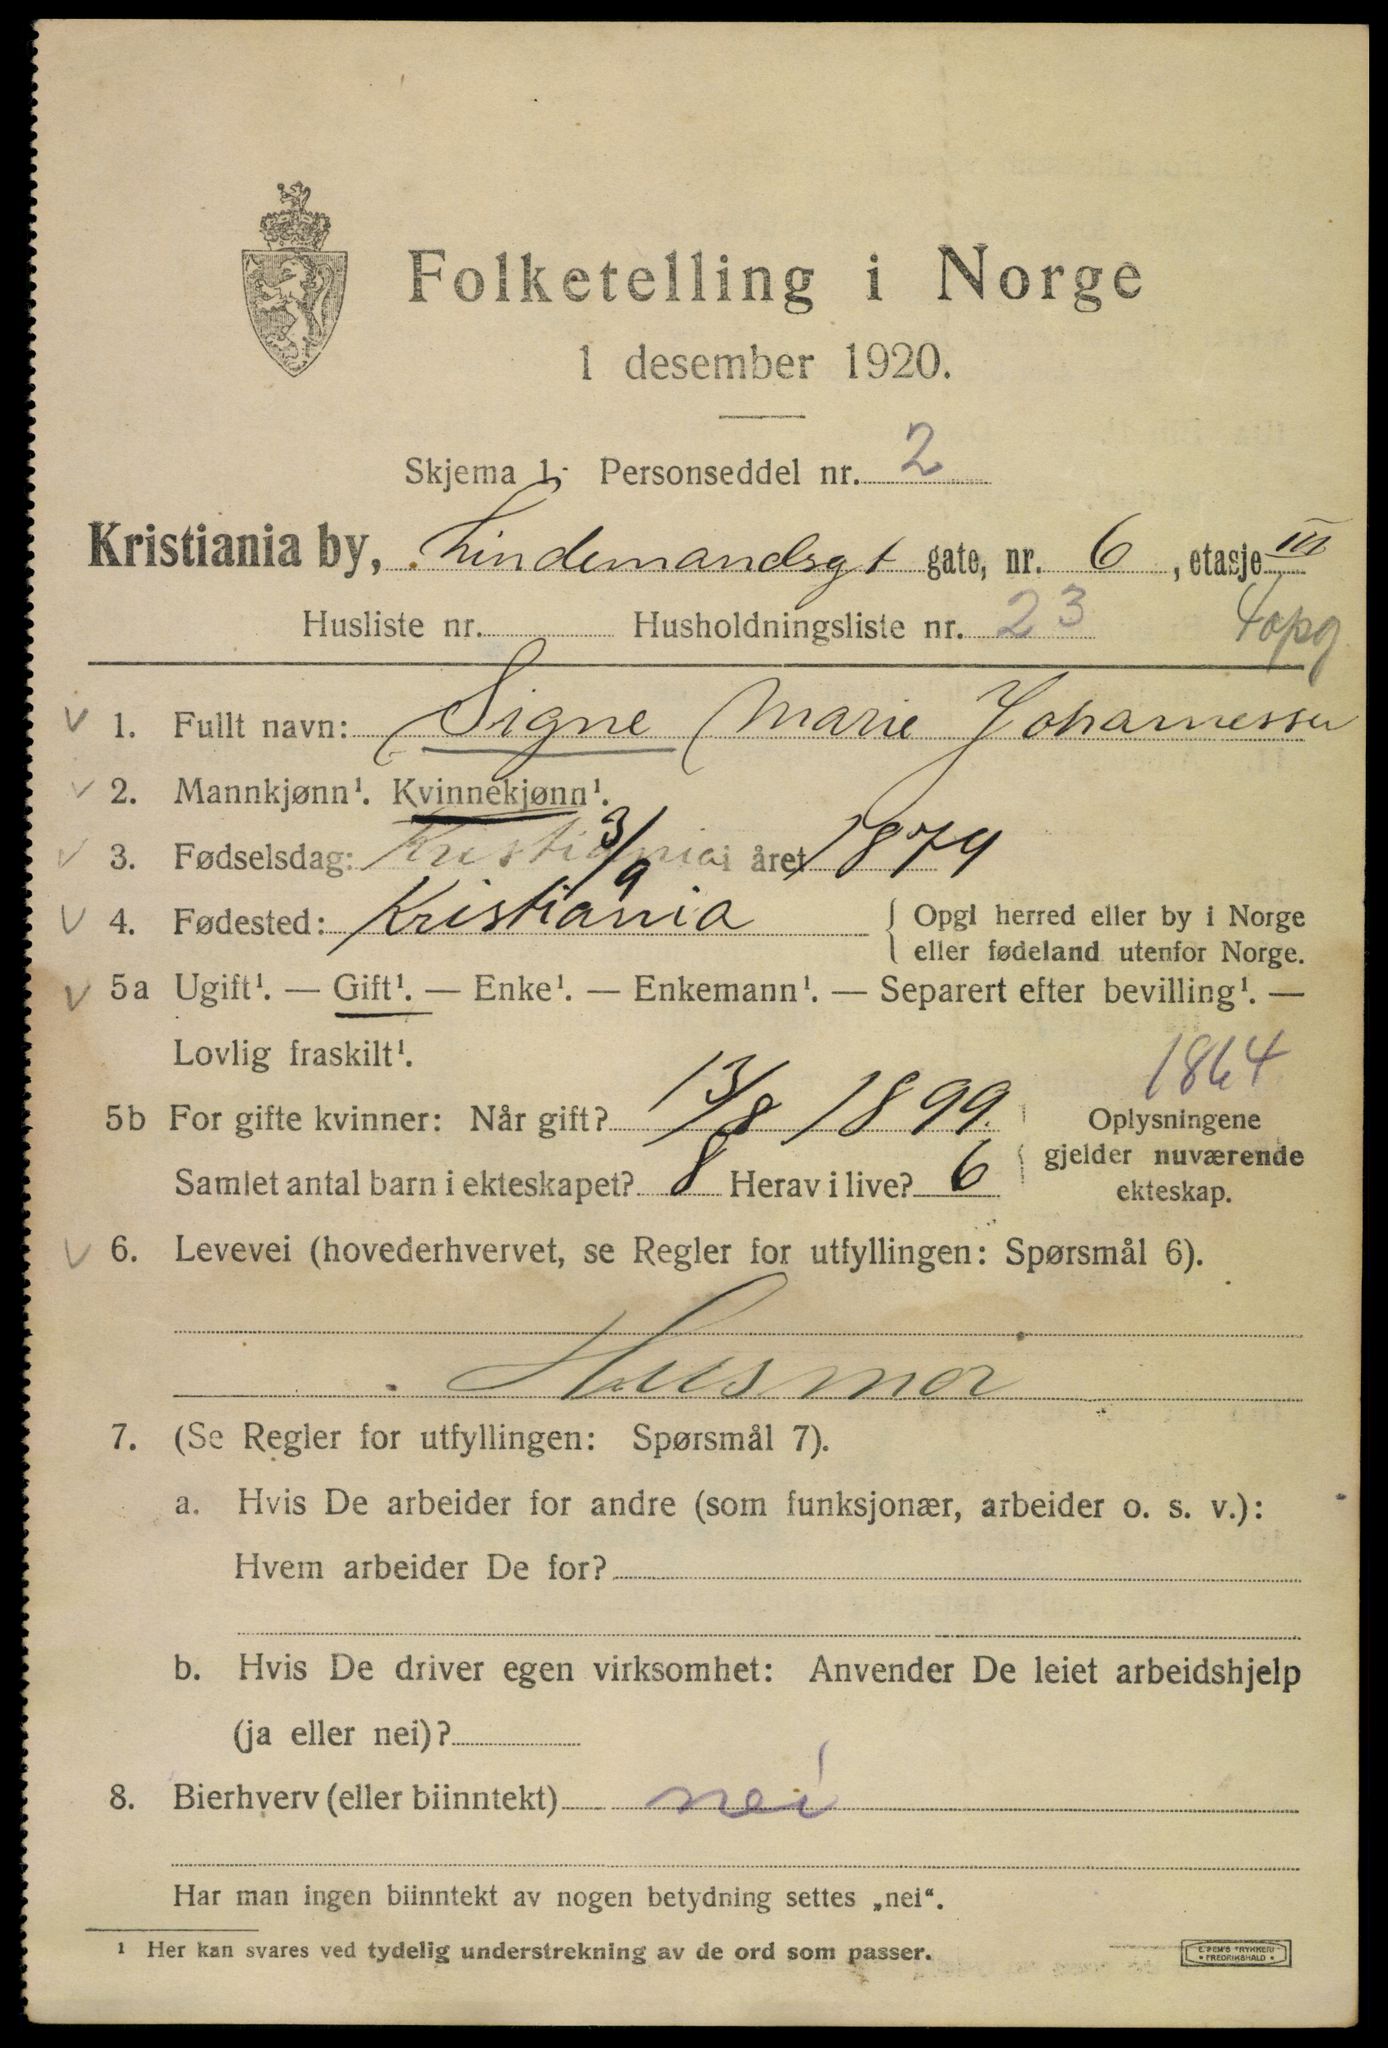 Folketelling i Norge
1 desember 1920.
Skjema 1. Personseddel nr. 2
Kristiania by, Lindemandsgt gate, nr. 6, etasje III
Husliste nr. Husholdningsliste nr. 23 Topg
1. Fullt navn: Signe Marie Johannessen
2. Mannkjønn¹. Kvinnekjønn¹.
3. Fødselsdag: Kristiania 3/9 i året 1879
4. Fødested: Kristiania { Opgi herred eller by i Norge
eller fødeland utenfor Norge.
5a Ugift¹. — Gift¹. — Enke¹. — Enkemann¹. — Separert efter bevilling¹. —
Lovlig fraskilt¹. 1864
5b For gifte kvinner: Når gift? 13/8 1899. Oplysningene
gjelder nuværende
Samlet antal barn i ekteskapet? 8 Herav i live? 6 ekteskap.
6. Levevei (hovederhvervet, se Regler for utfyllingen: Spørsmål 6).
Husmor
7. (Se Regler for utfyllingen: Spørsmål 7).
a. Hvis De arbeider for andre (som funksjonær, arbeider o. s. v.):
Hvem arbeider De for?
b. Hvis De driver egen virksomhet: Anvender De leiet arbeidshjelp
(ja eller nei)?
8. Bierhverv (eller biinntekt) nei
Har man ingen biinntekt av nogen betydning settes „nei“.
¹ Her kan svares ved tydelig understrekning av de ord som passer.
E. SEM'S TRYKKERI
• FREDRIKSHALD •